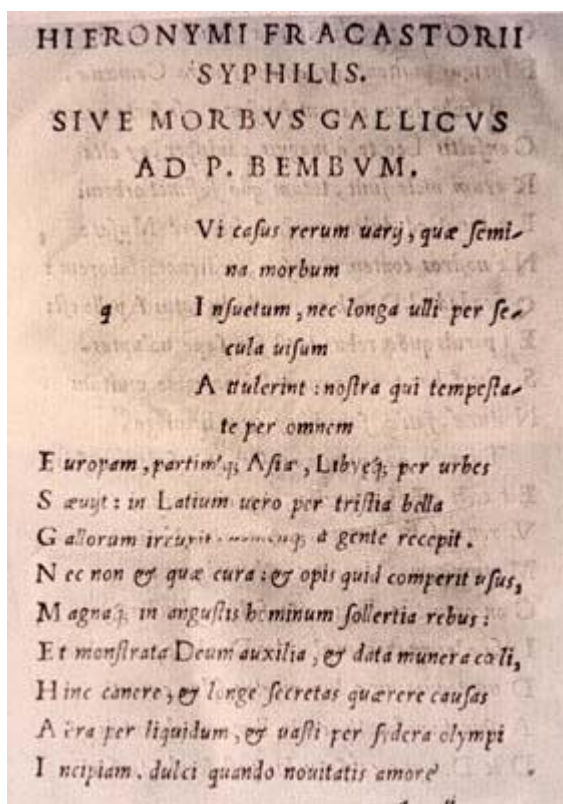 HIERONYMI FRACASTORII
SYPHILIS.
SIVE MORBVS GALLICVS
AD P. BEMBVM.
Vi caſus rerum uarij, quæ ſemi-
na morbum
q Inſuetum, nec longa ulli per ſe-
cula uiſum
Attulerint: noſtra qui tempeſta-
te per omnem
Europam, partimq; Aſiæ, Libyęq; per urbes
Sæuijt: in Latium uero per triſtia bella
Gallorum irrupit: nomenq; à gente recepit.
Nec non & quæ cura: & opis quid comperit uſus,
Magnaq; in anguſtis hominum ſollertia rebus:
Et monſtrata Deum auxilia, & data munera cœli,
Hinc canere, & longe ſecretas quærere cauſas
Aera per liquidum, & uaſti per ſydera olympi
Incipiam. dulci quando nouitatis amore